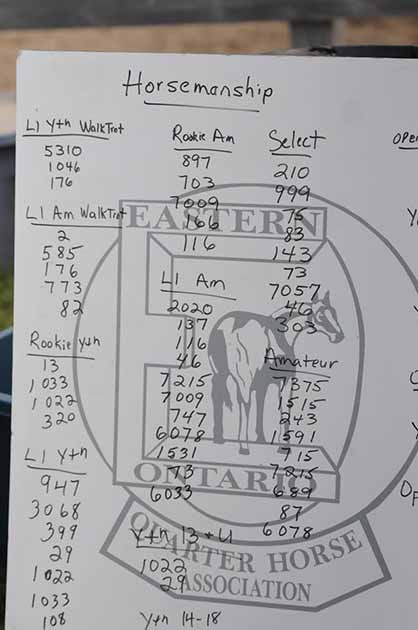 Horsemanship
L1 Yth WalkTrot
5310
1046
176
L1 Am WalkTrot
2
585
176
773
82
Rookie Yth
13
1033
1022
320
L1 Yth
947
3068
399
29
1022
1033
108
Rookie Am
897
703
7009
166
116
L1 Am
2020
137
116
46
7215
7009
747
6078
1531
73
6033
Yth 13 + U
1022
29
Yth 14-18
Select
210
999
75
83
143
73
7057
46
303
Amateur
7375
1515
243
1591
715
7215
689
87
6078
EASTERN
ONTARIO
QUARTER HORSE
ASSOCIATION